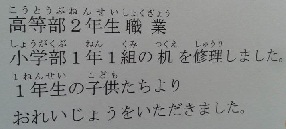 こうとうぶねんせいしょくぎょう
高等部２年生職業
しょうがくぶ ねん くみ つくえ しゅうり
小学部１年１組の机を修理しました。
１ねんせい こども
１年生の子供たちより
おれいじょうをいただきました。